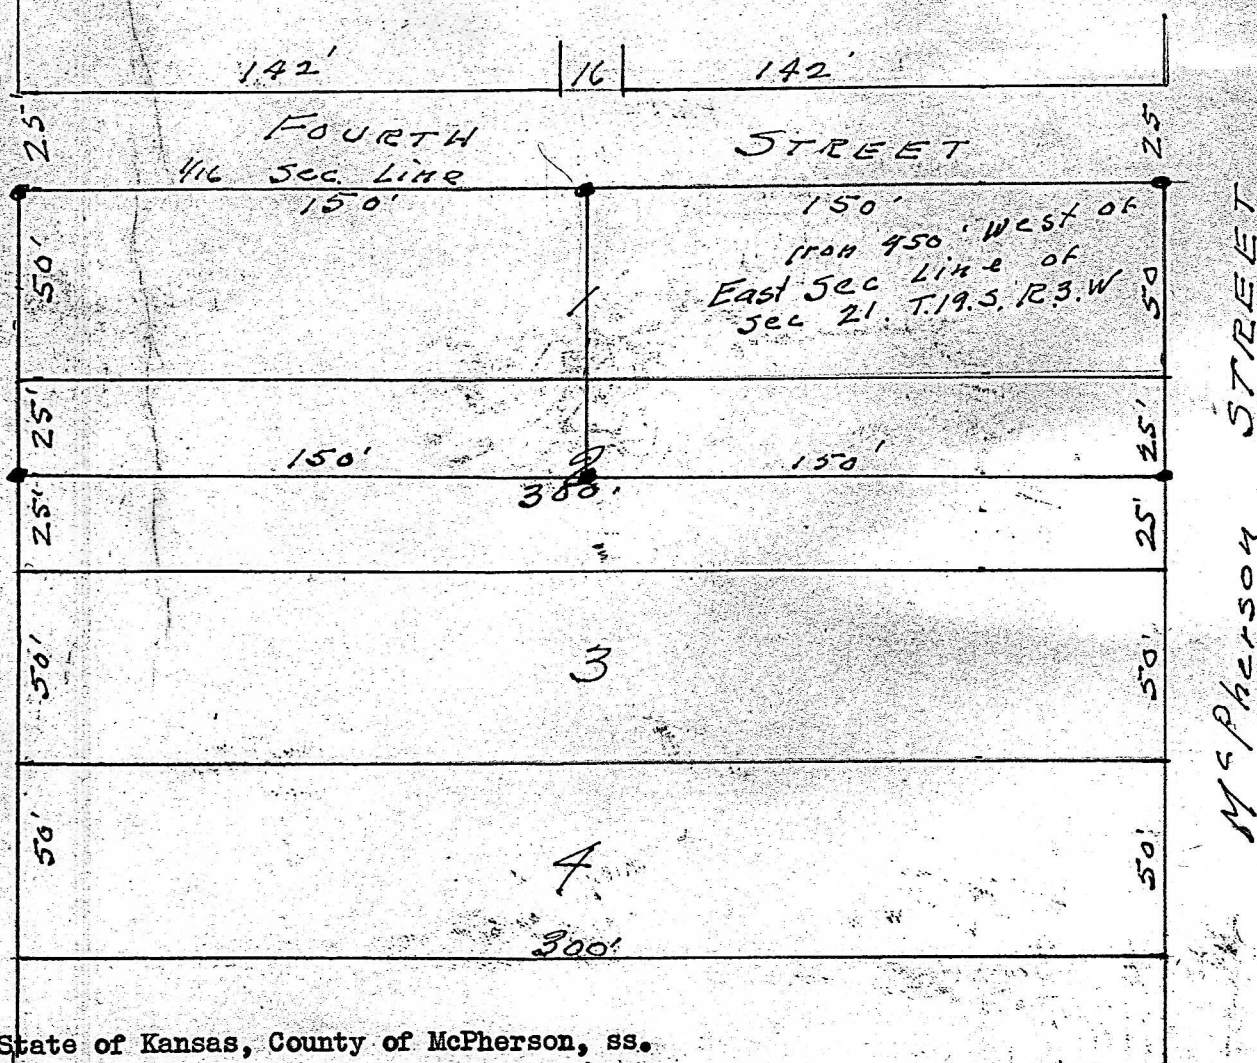 142'
16
142'
25'
FOURTH
STREET
25
1/16 Sec Line
150'
150'
Iron 450' West of
East Sec Line of
Sec 21. T.19.S. R.3.W
50'
1
50
STREET
25'
25'
150'
2
150'
300'
25'
25'
McPherson
50'
3
50'
50'
4
50'
300'
State of Kansas, County of McPherson, ss.